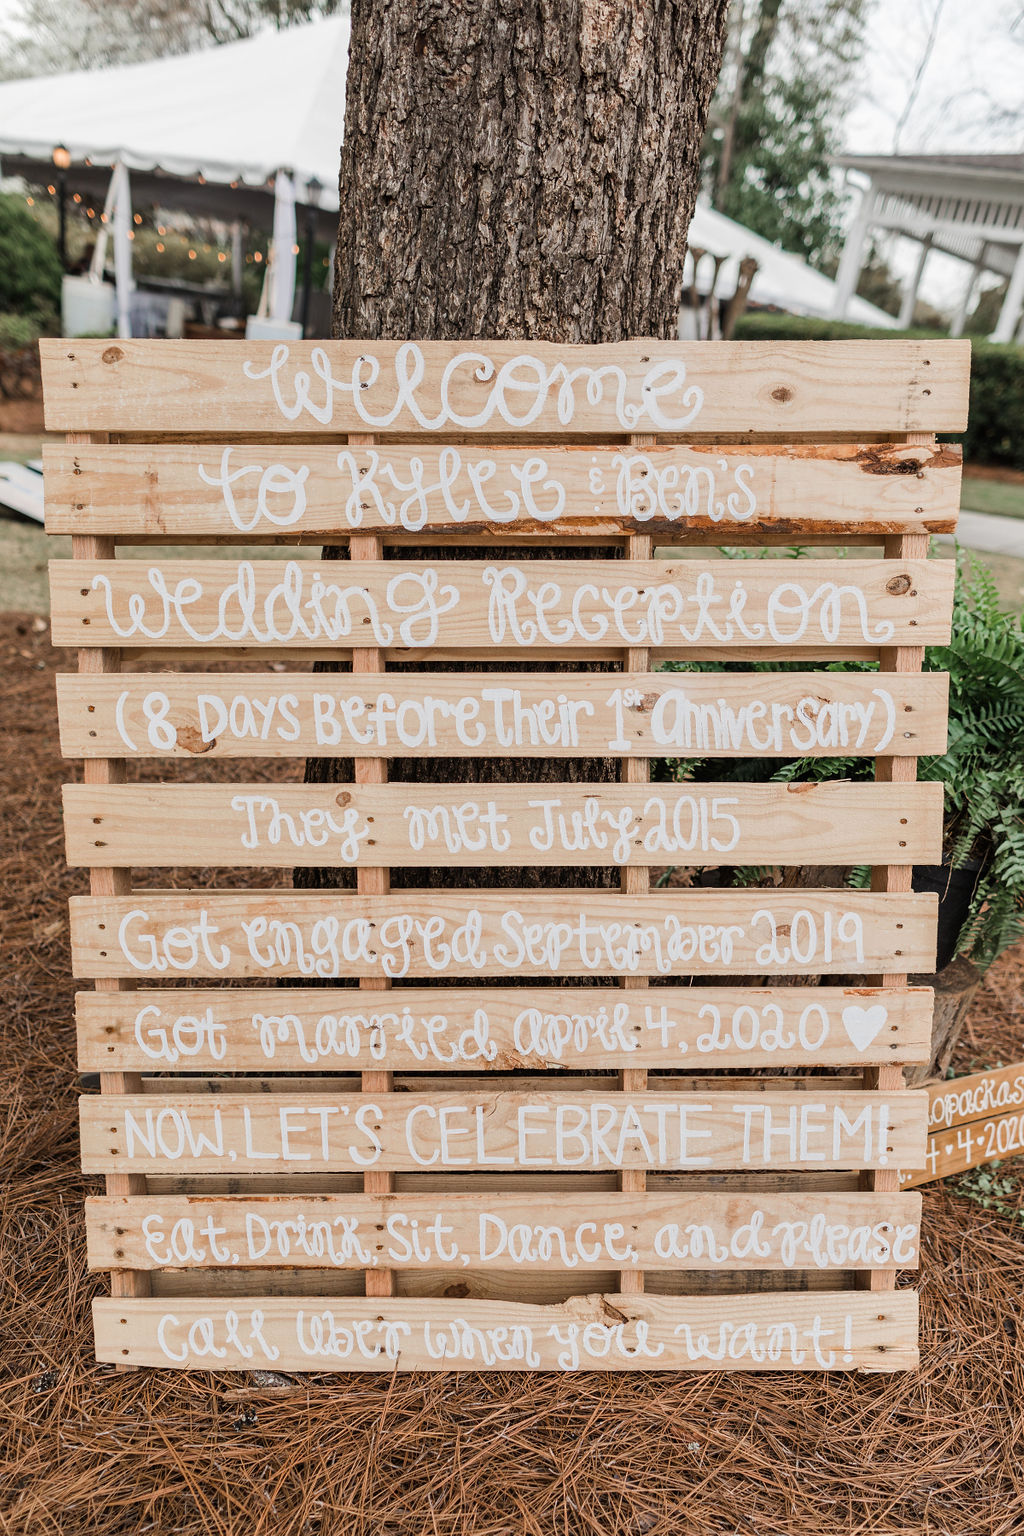 Welcome
to Kylee & Ben's
Wedding Reception
(8 Days Before Their 1st Anniversary)
They met July 2015
Got engaged September 2019
Got married April 4, 2020
NOW, LET'S CELEBRATE THEM!
Eat, Drink, Sit, Dance, and please
Call Uber when you want!
4•4•2020